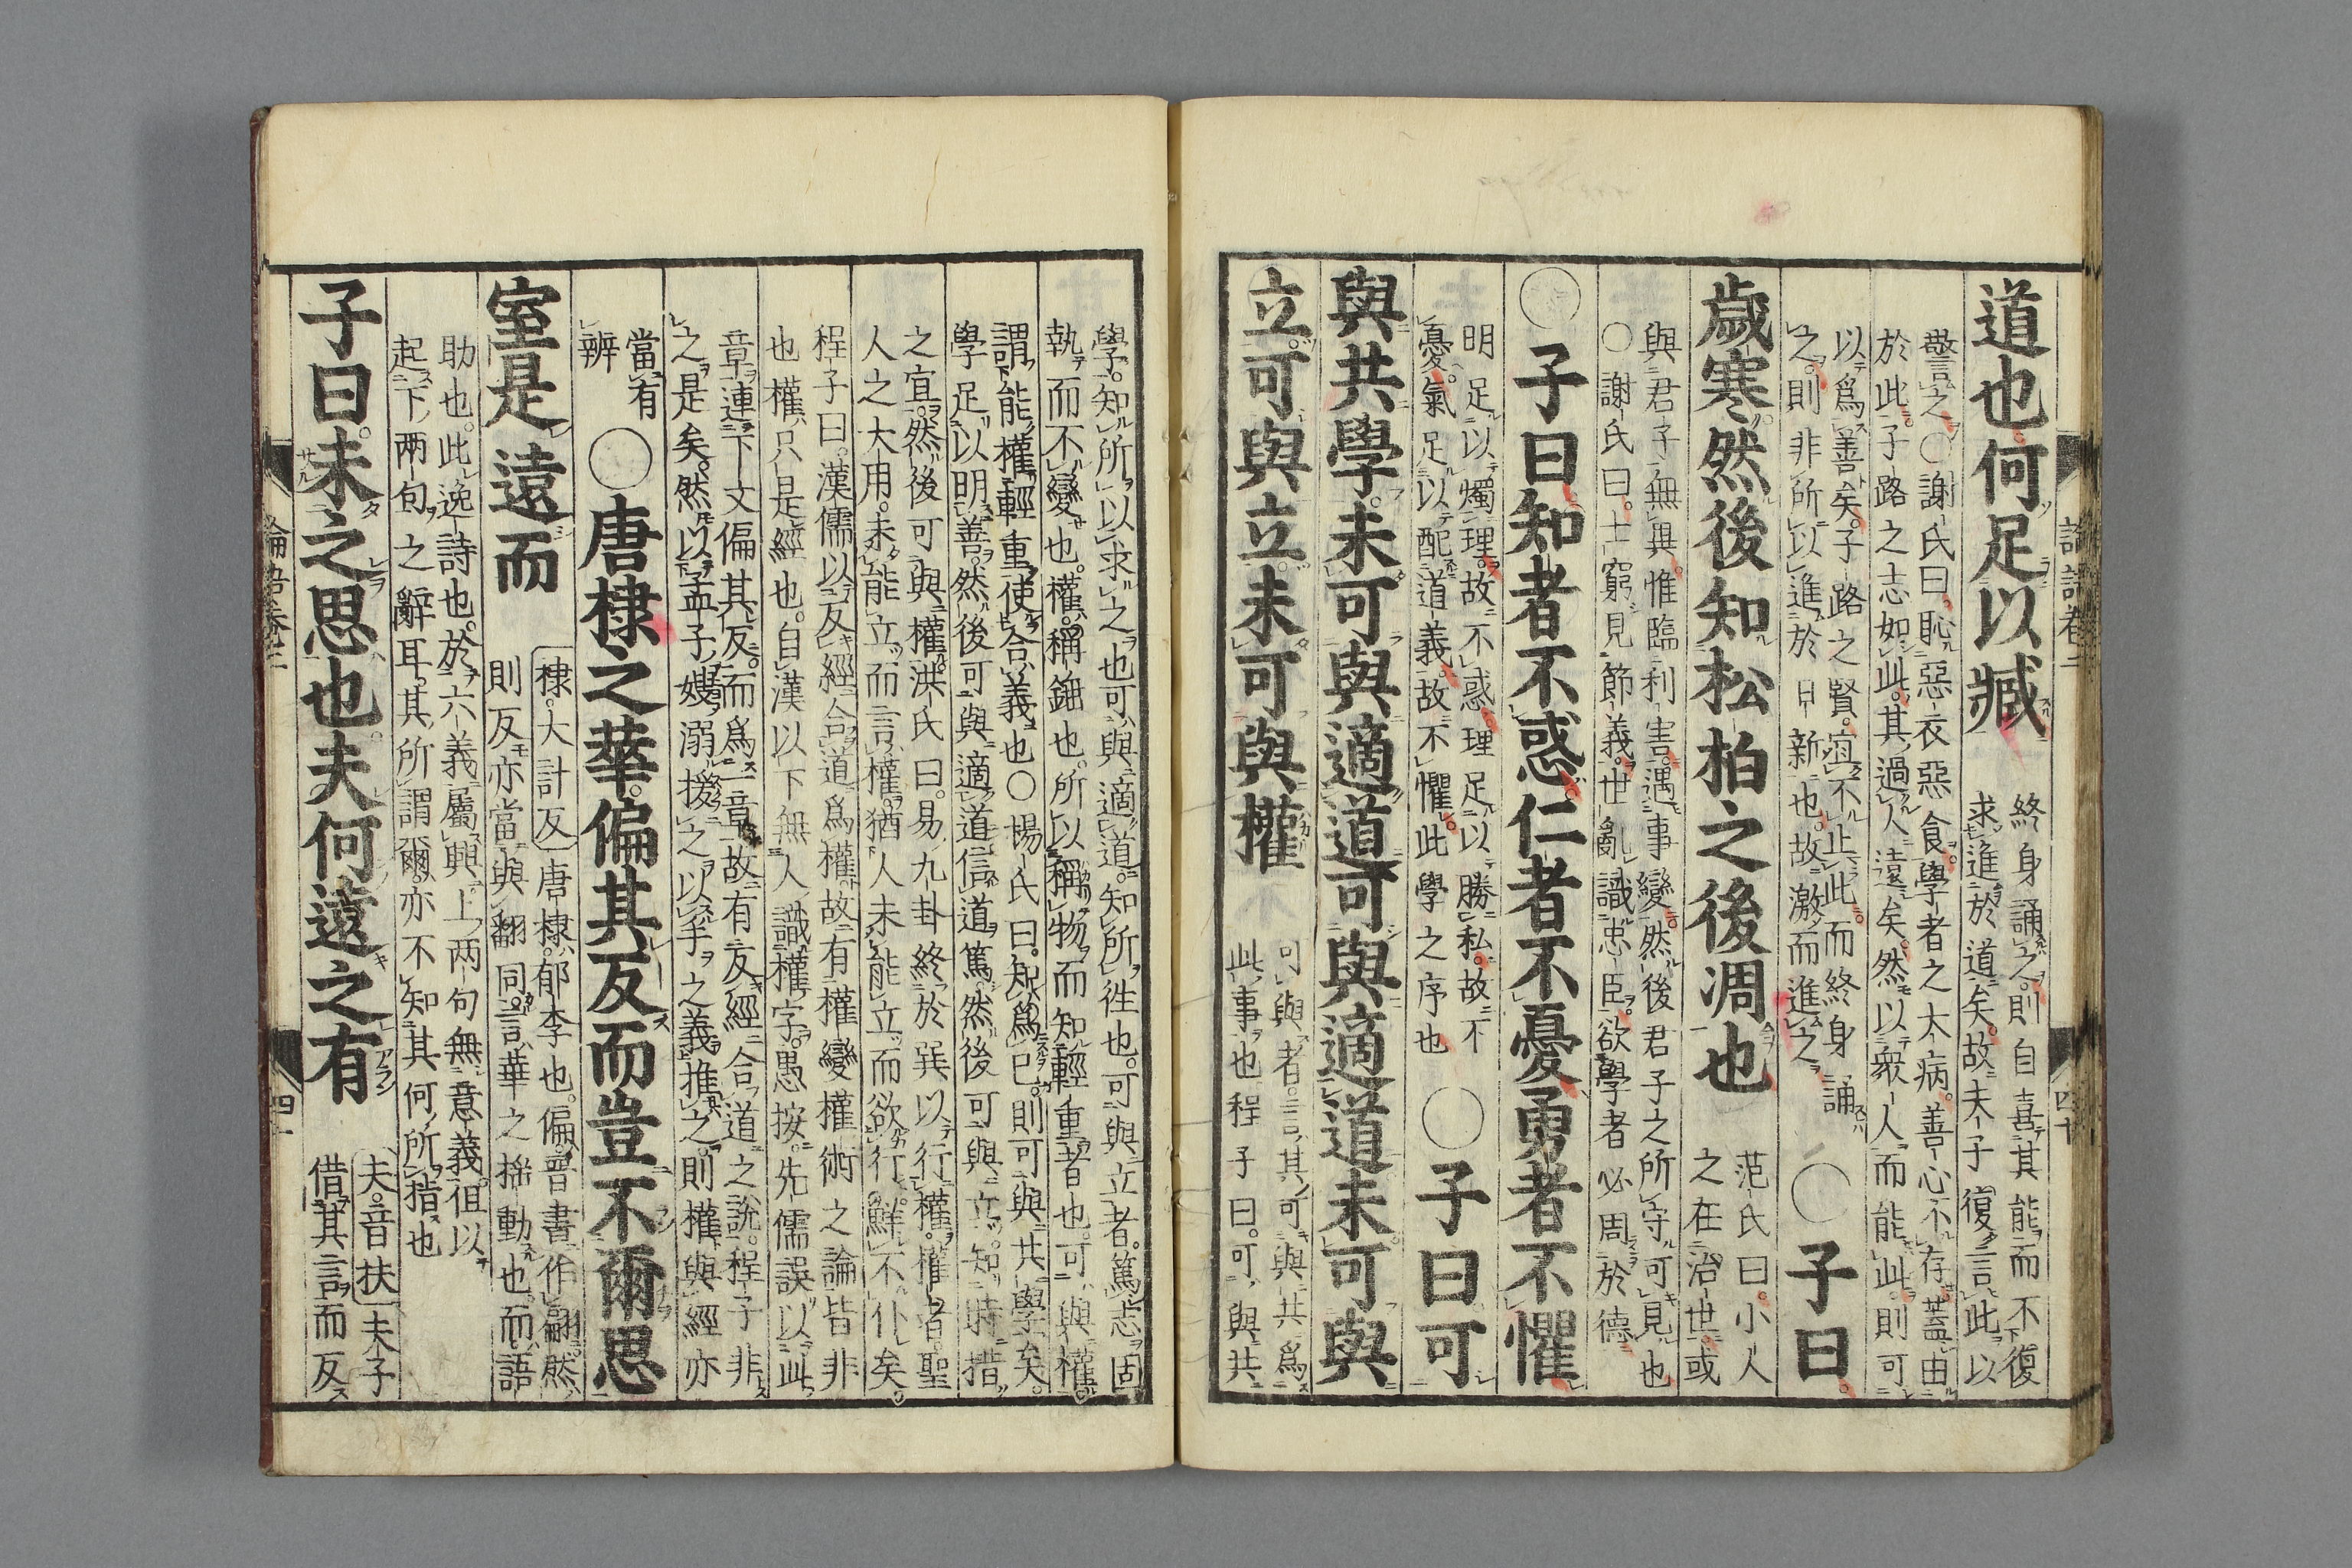 論語卷三
四十
道也何足以臧
終身誦之則自喜其能而不復
求進於道矣故夫子復言此以
警之○謝氏曰恥惡衣惡食學者之大病善心不存蓋由
於此子路之志如此其過人遠矣然以衆人而能此則可
以爲善矣子路之賢宜不止此而終身誦
之則非所以進於日新也故激而進之
○子曰
歲寒然後知松柏之後凋也
范氏曰小人
之在治世或
與君子無異惟臨利害遇事變然後君子之所守可見也
○謝氏曰士窮見節義世亂識忠臣欲學者必周於德
○子曰知者不惑仁者不憂勇者不懼
明足以燭理故不惑理足以勝私故不
憂氣足以配道義故不懼此學之序也
○子曰可
與共學未可與適道可與適道未可與
立可與立未可與權
可與者言其可與共爲
此事也程子曰可與共
學知所以求之也可與適道知所徃也可與立者篤志固
執而不變也權稱錘也所以稱物而知輕重者也可與權
謂能權輕重使合義也○楊氏曰知爲己則可與共學矣
學足以明善然後可與適道信道篤然後可與立知時措
之宜然後可與權洪氏曰易九卦終於巽以行權權者聖
人之大用未能立而言權猶人未能立而欲行鮮不仆矣
程子曰漢儒以反經合道爲權故有權變權術之論皆非
也權只是經也自漢以下無人識權字愚按先儒誤以此
章連下文偏其反而爲一章故有反經合道之說程子非
之是矣然以孟子嫂溺援之以手之義推之則權與經亦
當有
辨
○唐棣之華偏其反而豈不爾思
室是遠而
棣大計反唐棣郁李也偏晉書作翩然
則反亦當與翻同言華之搖動也而語
助也此逸詩也於六義屬興上兩句無意義徂以
起下兩句之辭耳其所謂爾亦不知其何所指也
子曰未之思也夫何遠之有
夫音扶夫子
借其言而反
論語卷三
四十一